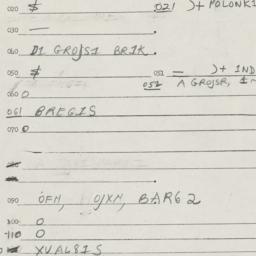 020 $ 021 )+ POLONK1
030 —
040 D1 GROJS1 BR1K.
050 $ 051 — )+ IND
052 A GROJSR,
060 O
061 BREGIS
070 O
090 OFH, OJXM, BARG 2
100 O
110 O
XVAL81S